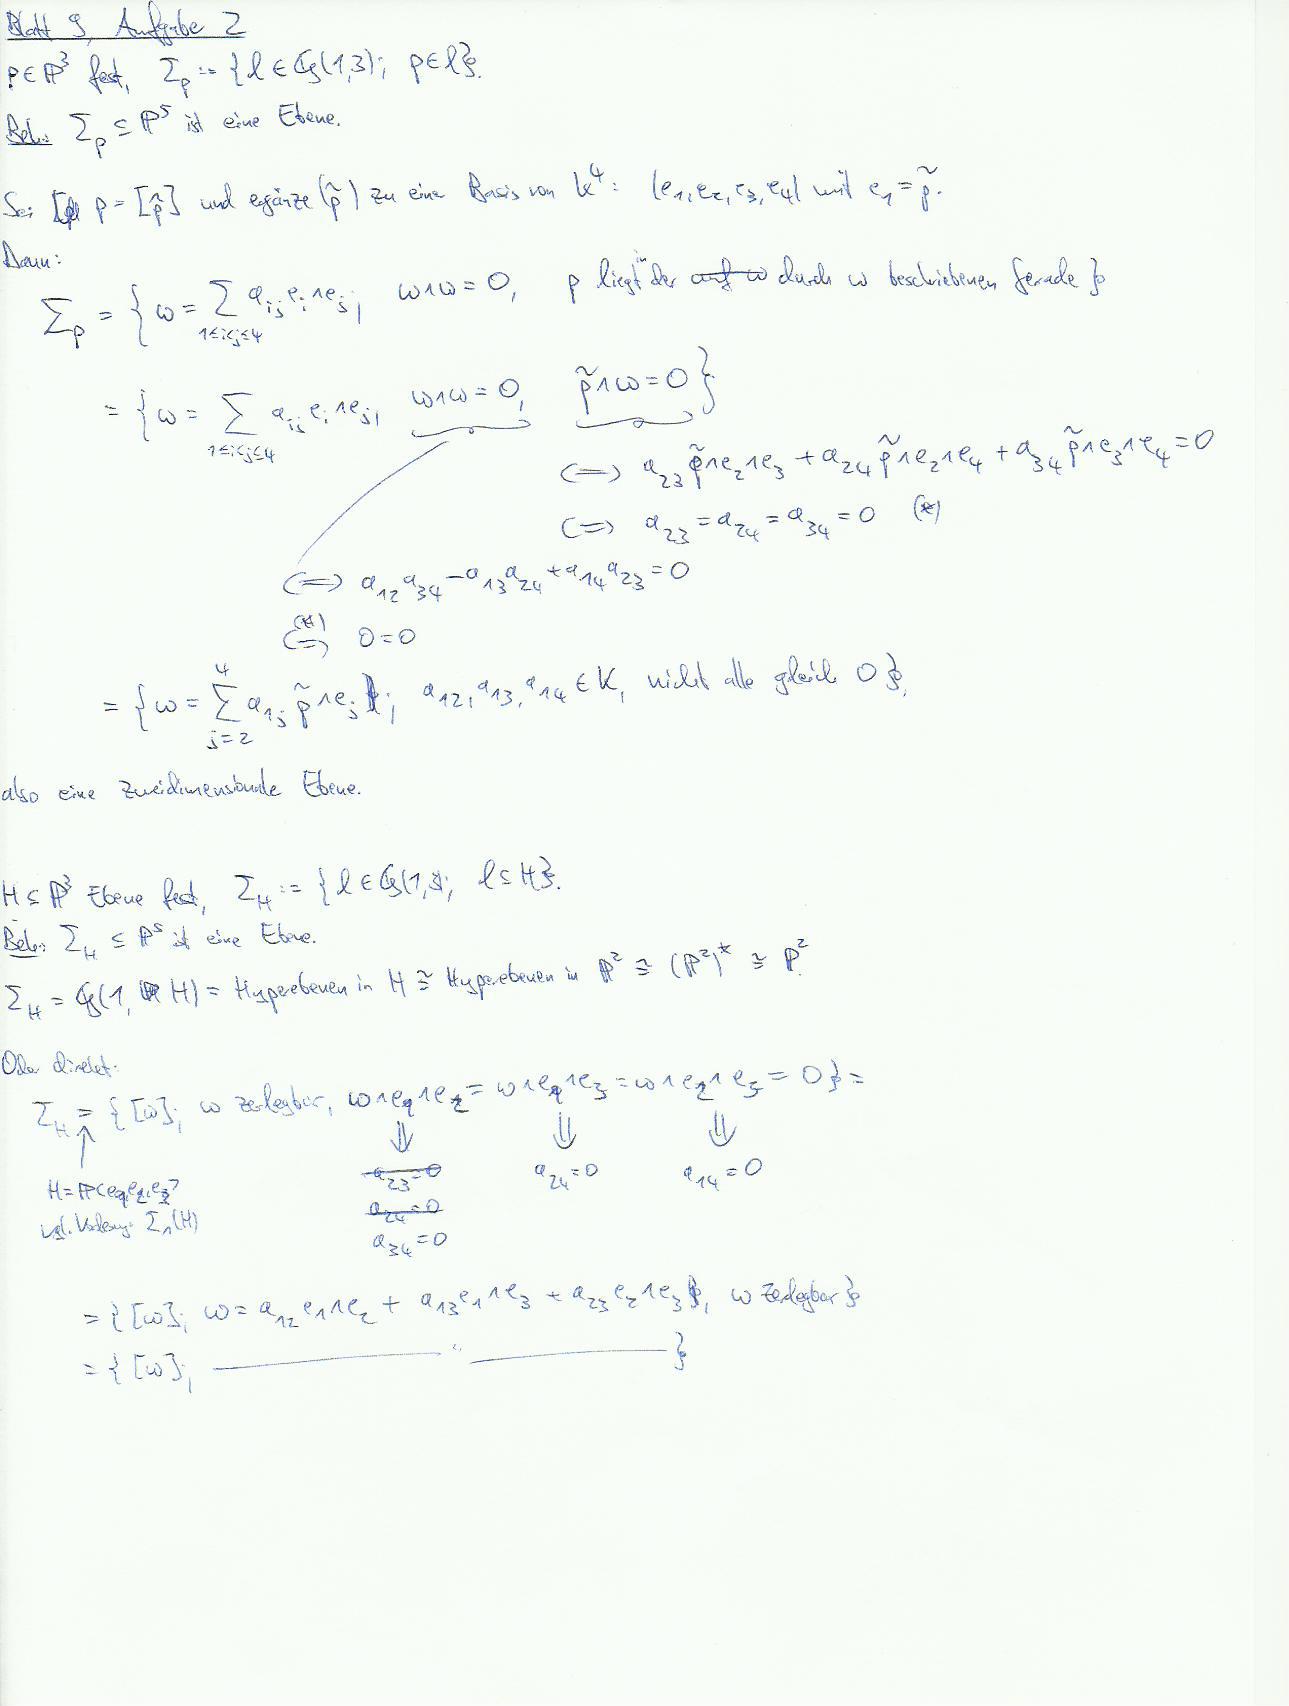 Blatt 9, Aufgabe 2
p ∈ ℙ³ fest, Σ_p := {l ∈ 𝔾(1,3); p ∈ l}.
Beh.: Σ_p ⊆ ℙ⁵ ist eine Ebene.
Sei p = [p̃] und ergänze (p̃) zu eine Basis von K⁴: (e₁, e₂, e₃, e₄) mit e₁ = p̃.
Dann:
Σ_p = { ω = Σ_{1≤i<j≤4} a_{ij} e_i ∧ e_j, ω∧ω = 0, p liegt in der durch ω beschriebenen Gerade }
= { ω = Σ_{1≤i<j≤4} a_{ij} e_i ∧ e_j, ω∧ω = 0, p̃∧ω = 0 }
⟺ a₂₃ p̃∧e₂∧e₃ + a₂₄ p̃∧e₂∧e₄ + a₃₄ p̃∧e₃∧e₄ = 0
⟺ a₂₃ = a₂₄ = a₃₄ = 0 (*)
⟺ a₁₂a₃₄ − a₁₃a₂₄ + a₁₄a₂₃ = 0
(*) ⟺ 0 = 0
= { ω = Σ_{j=2}^{4} a_{1j} p̃∧e_j ; a₁₂, a₁₃, a₁₄ ∈ K, nicht alle gleich 0 },
also eine zweidimensionale Ebene.
H ⊆ ℙ³ Ebene fest, Σ_H := {l ∈ 𝔾(1,3); l ⊆ H}.
Beh.: Σ_H ⊆ ℙ⁵ ist eine Ebene.
Σ_H = 𝔾(1, H) = Hyperebenen in H ≅ Hyperebenen in ℙ² ≅ (ℙ²)* ≅ ℙ².
Oder direkt:
Σ_H = { [ω]; ω zerlegbar, ω∧e₁∧e₂ = ω∧e₁∧e₃ = ω∧e₂∧e₃ = 0 } =
⇓ ⇓ ⇓
a₂₃=0 a₂₄=0 a₁₄=0
H = ℙ<e₁,e₂,e₃>
a₂₄=0
vgl. Vorlesung: Σ₁(H)
a₃₄=0
= { [ω]; ω = a₁₂ e₁∧e₂ + a₁₃ e₁∧e₃ + a₂₃ e₂∧e₃, ω zerlegbar }
= { [ω]; ——— " ——— }